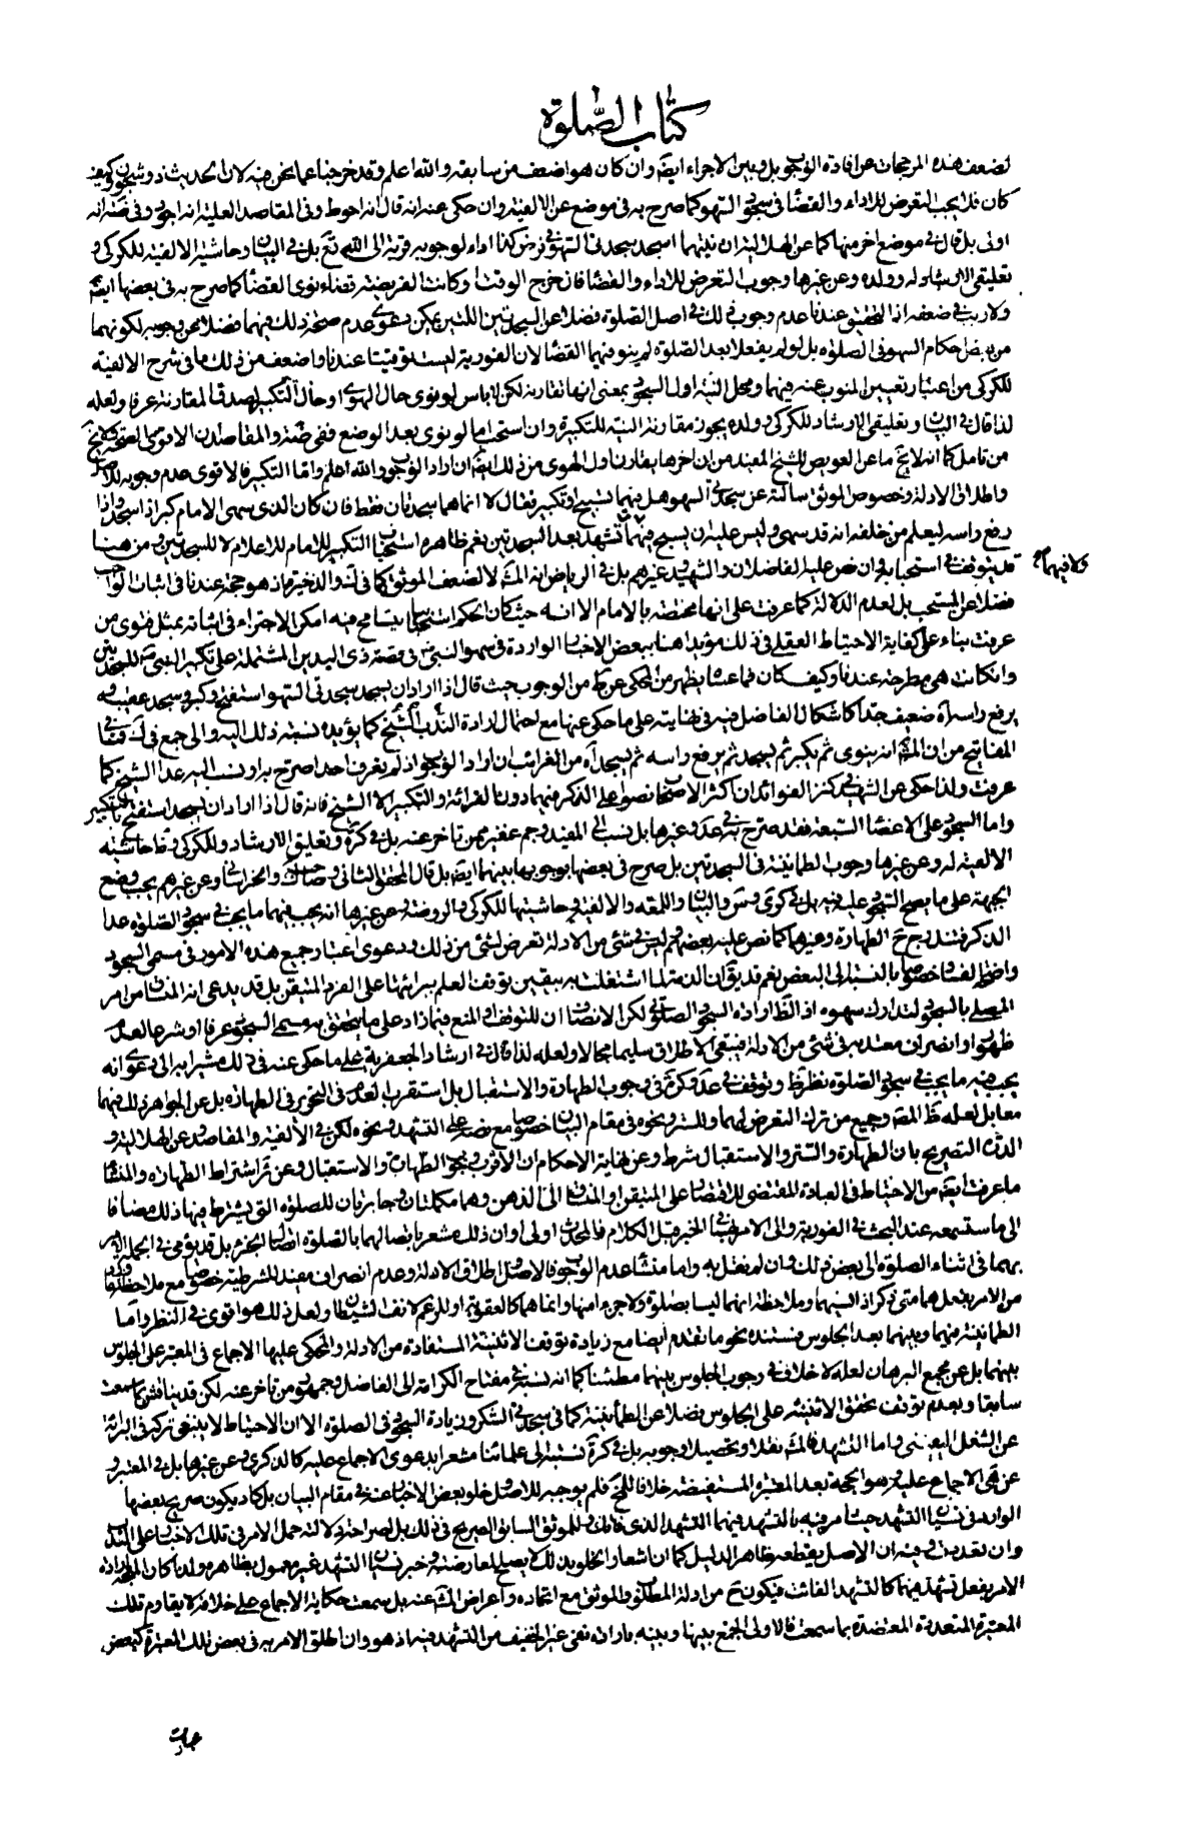 كتاب الصلوة
لضعف هذه المرجحات عن افادة الوجوب بل وبين الاجزاء ايضا وان كان هو اضعف من سابقه والله اعلم وقد خرجنا عما نحن فيه لان الحديث ذو شجون وكيف
كان فلا يجب التعرض للاداء والقضاء في سجود السهو كما صرح به في موضع عن الالفية وان حكى عنه انه قال انه احوط وفي المقاصد العلية انه اجود وفي ضة انه
اولى بل قال في موضع اخر منها كما عن الهلالية ان نيتهما اسجد سجدتي السهو في فرض كذا اداء لوجوبه قربة الى الله تع بل في البيان وحاشية الالفية للكركي و
تعليقي الارشاد له وولده وعن غيرها وجوب التعرض للاداء والقضاء فان خرج الوقت او كانت الفريضة قضاء نوى القضاء كما صرح به في بعضها ايضا
ولا ريب في ضعفه اذ التحقيق عندنا عدم وجوب ذلك في اصل الصلوة فضلا عن السجدتين اللتين يمكن دعوى عدم صحة ذلك فيهما فضلا عن وجوبه لكونهما
من بعض احكام السهو في الصلوة بل لو لم يفعلا بعد الصلوة لم ينو فيهما القضاء لان الفورية ليست توقيتا عندنا واضعف من ذلك ما في شرح الالفية
للكركي من اعتبار تعيين المنوب عنه فيهما ومحل النية اول السجود بمعنى انها تقارنه لكن لا باس لو نوى حال الهوي او حال التكبير لصدق المقارنة عرفا ولعله
لذا قال في البيان وتعليقي الارشاد للكركي وولده يجوز مقارنة النية للتكبيرة وان استحب اما لو نوى بعد الوضع ففي ضة والمقاصد ان الاقوى الصحة ولا يخ
من تامل كما انه لا يخ ما عن العويص للشيخ المفيد من ان اخرها يقارن اول الهوي من ذلك ايضا ان اراد الوجوب والله اعلم واما التكبير فالاقوى عدم وجوبه للاصل
واطلاق الادلة وخصوص الموثق سالته عن سجدتي السهو هل فيهما تسبيح او تكبير فقال لا انما هما سجدتان فقط فان كان الذي سهى الامام كبر اذا سجد واذا
رفع راسه ليعلم من خلفه انه قد سهى وليس عليه ان يسبح فيهما تشهد بعد السجدتين نعم ظاهره استحباب التكبير للامام للاعلام لا للسجدتين ومن هنا
ولا فيهما
قد يتوقف في استحبابه وان نص عليه الفاضلان والشهيد وغيرهم بل في الرياض انه المش لا لضعف الموثق كما في ك والذخيرة اذ هو حجة عندنا في اثبات الواجب
فضلا عن المستحب بل لعدم الدلالة كما عرفت على انها مختصة بالامام الا انه حيث كان الحكم استحبابا يتسامح فيه امكن الاجتزاء في اثباته بمثل فتوى من
عرفت بناء على كفاية الاحتياط العقلي في ذلك مؤيدا هنا ببعض الاخبار الواردة في سهو النبي ص في قصة ذي اليدين المشتملة على تكبير النبي ص للسجدتين
وان كانت هي مطرحة عندنا وكيف كان فما عساه يظهر من المحكي عن ط من الوجوب حيث قال اذا اراد ان يسجد سجدتي السهو استفتح وكبر وسجد عقيبه و
يرفع راسه اه ضعيف جدا كاشكال الفاضل فيه في نهايته على ما حكى عنها مع احتمال ارادة الندب الشيخ كما يؤيده نسبة ذلك اليه والى جمع في ك فما في
المفاتيح من ان المش انه ينوي ثم يكبر ثم يسجد ثم يرفع راسه ثم يسجد اه من الغرائب ان اراد الوجوب اذ لم يعرف احد صرح به او نسب اليه عدا الشيخ كما
عرفت ولذا حكى عن الشهيد في كنز الفوائد ان اكثر الاصحاب نصوا على الذكر فيهما دون القرائة والتكبير الا الشيخ فانه قال اذا اراد ان يسجد استفتح بالتكبير
واما السجود على الاعضاء السبعة فقد صرح به في عد وغيرها بل نسب الى المفيد وجم غفير ممن تاخر عنه بل في كرى وتعليق الارشاد والكركي وحاشيته
الالفية له وعن غيرها وجوب الطمانينة في السجدتين بل صرح في بعضها بوجوبها بينهما ايضا بل قال المحقق الثاني وصاحب ك والخراساني وعن غيرهم يجب وضع
الجبهة على ما يصح السجود عليه فيه بل في كرى وس والبيان واللمعة والالفية وحاشيتها للكركي والروضة وعن غيرها انه يجب فيهما ما يجب في سجود الصلوة عدا
الذكر فتندرج ح الطهارة وغيرها كما نص عليه بعضهم وليس في شئ من الادلة تعرض لشئ من ذلك ودعوى اعتبار جميع هذه الامور في مسمى السجود
واضحة الفساد خصوصا بالنسبة الى البعض نعم قد يق ان الذمة لما اشتغلت به بيقين توقف العلم ببرائتها على الفرد المتيقن بل قد يدعى انه المنساق من امر
المصلي بالسجود لتدارك سهوه اذ الظ ارادة السجود الصلوتي لكن الانصاف ان للتوقف والمنع فيما زاد على ما يتحقق به مسمى السجود عرفا او شرعا لعدم
ظهور او انصراف معتد به في شئ من الادلة فيبقى الاطلاق سليما بحاله ولعله لذا قال في ارشاد الجعفرية على ما حكى عنه في ذلك مشيرا به الى دعوى انه
يجب فيه ما يجب في سجود الصلوة نظر ظ وتوقف في عد وكرة في وجوب الطهارة والاستقبال بل استقرب العدم في التحرير في الطهارة بل عن الجواهر ذلك فيهما
معا بل لعله ظ المص وجميع من ترك التعرض لهما وللستر ونحوه في مقام البيان خصوصا مع نصه على التشهد ونحوه لكن في الالفية والمقاصد وعن الهلالية و
الدرة التصريح بان الطهارة والستر والاستقبال شرط وعن نهاية الاحكام ان الاقرب وجوب الطهارة والاستقبال وعن ئر اشتراط الطهارة والمنشأ
ما عرفت ايضا من الاحتياط في العبادة المقتضي للاقتصار على المتيقن او المنساق الى الذهن وهما مكملتان وجابرتان للصلوة التي يشترط فيها ذلك مضافا
الى ما ستسمعه عند البحث في الفورية والى الامر في الخبر قبل الكلام فالحدث اولى او ان ذلك مشعر باتصالهما بالصلوة اتصال الجزء بل قد يؤمي في الجملة الامر
بهما في اثناء الصلوة الى بعض ذلك وان لم نقل به واما منشأ عدم الوجوب فالاصل واطلاق الادلة وعدم انصراف معتد للشرطية خصوصا مع ملاحظة ما ورد
من الامر بفعلهما متى ذكر اذا نسيهما وملاحظة انهما ليسا بصلوة ولا جزء منها وانما هما كالعقوبة او لرغم انف الشيطان ولعل ذلك هو اقوى في النظر واما
الطمانينة فيهما وبينهما بعد الجلوس فمستنده نحو ما تقدم ايضا مع زيادة توقف الاثنينية المستفادة من الادلة والمحكي عليها الاجماع في المعتبر على الجلوس
بينهما بل عن مجمع البرهان لعله لا خلاف في وجوب الجلوس بينهما مطمئنا كما انه نسبه في مفتاح الكرامة الى الفاضل وجمهور من تاخر عنه لكن قد يناقش بما سمعت
سابقا وبعدم توقف تحقق الاثنينية على الجلوس فضلا عن الطمأنينة كما في سجدتي الشكر وزيادة السجود في الصلوة الا ان الاحتياط لا ينبغي تركه في البرائة
عن الشغل اليقيني واما التشهد فالمش نقلا وتحصيلا وجوبه بل في كرة نسبته الى علمائنا مشعرا بدعوى الاجماع عليه كالذكرى وعن غيرها بل في المعتبر و
عن هى الاجماع عليه وهو الحجة بعد المعتبرة المستفيضة خلافا للمخ فلم يوجبه للاصل وخلو بعض الاخبار عنه في مقام البيان بل كاد يكون صريح بعضها
الوارد في نسيان التشهد حيث امر فيه بالتشهد فيهما التشهد الذي فاتك وللموثق السابق الصريح في ذلك بل لصراحة دلالته حمل الامر في تلك الاخبار على الندب
وان تقدمت وفيه ان الاصل يقطعه ظاهر الدليل كما ان اشعار الخلو بذلك لا يصلح للمعارضة وخبر نسيان التشهد غير معمول بظاهره ولذا كان المتجه ارادة
الامر بفعل تشهد فيهما كالتشهد الفائت فيكون ح من ادلة المطلوب والموثق مع اتحاده واعراض المش عنه بل سمعت حكاية الاجماع على خلافه لا يقاوم تلك
المعتبرة المتعددة المعتضدة بما سمعت فالاولى الجمع بينها وبينه بارادة نفي غير الخفيف من التشهد فيه اذ هو وان اطلق الامر به في بعض تلك المعتبرة كبعض
عبارات